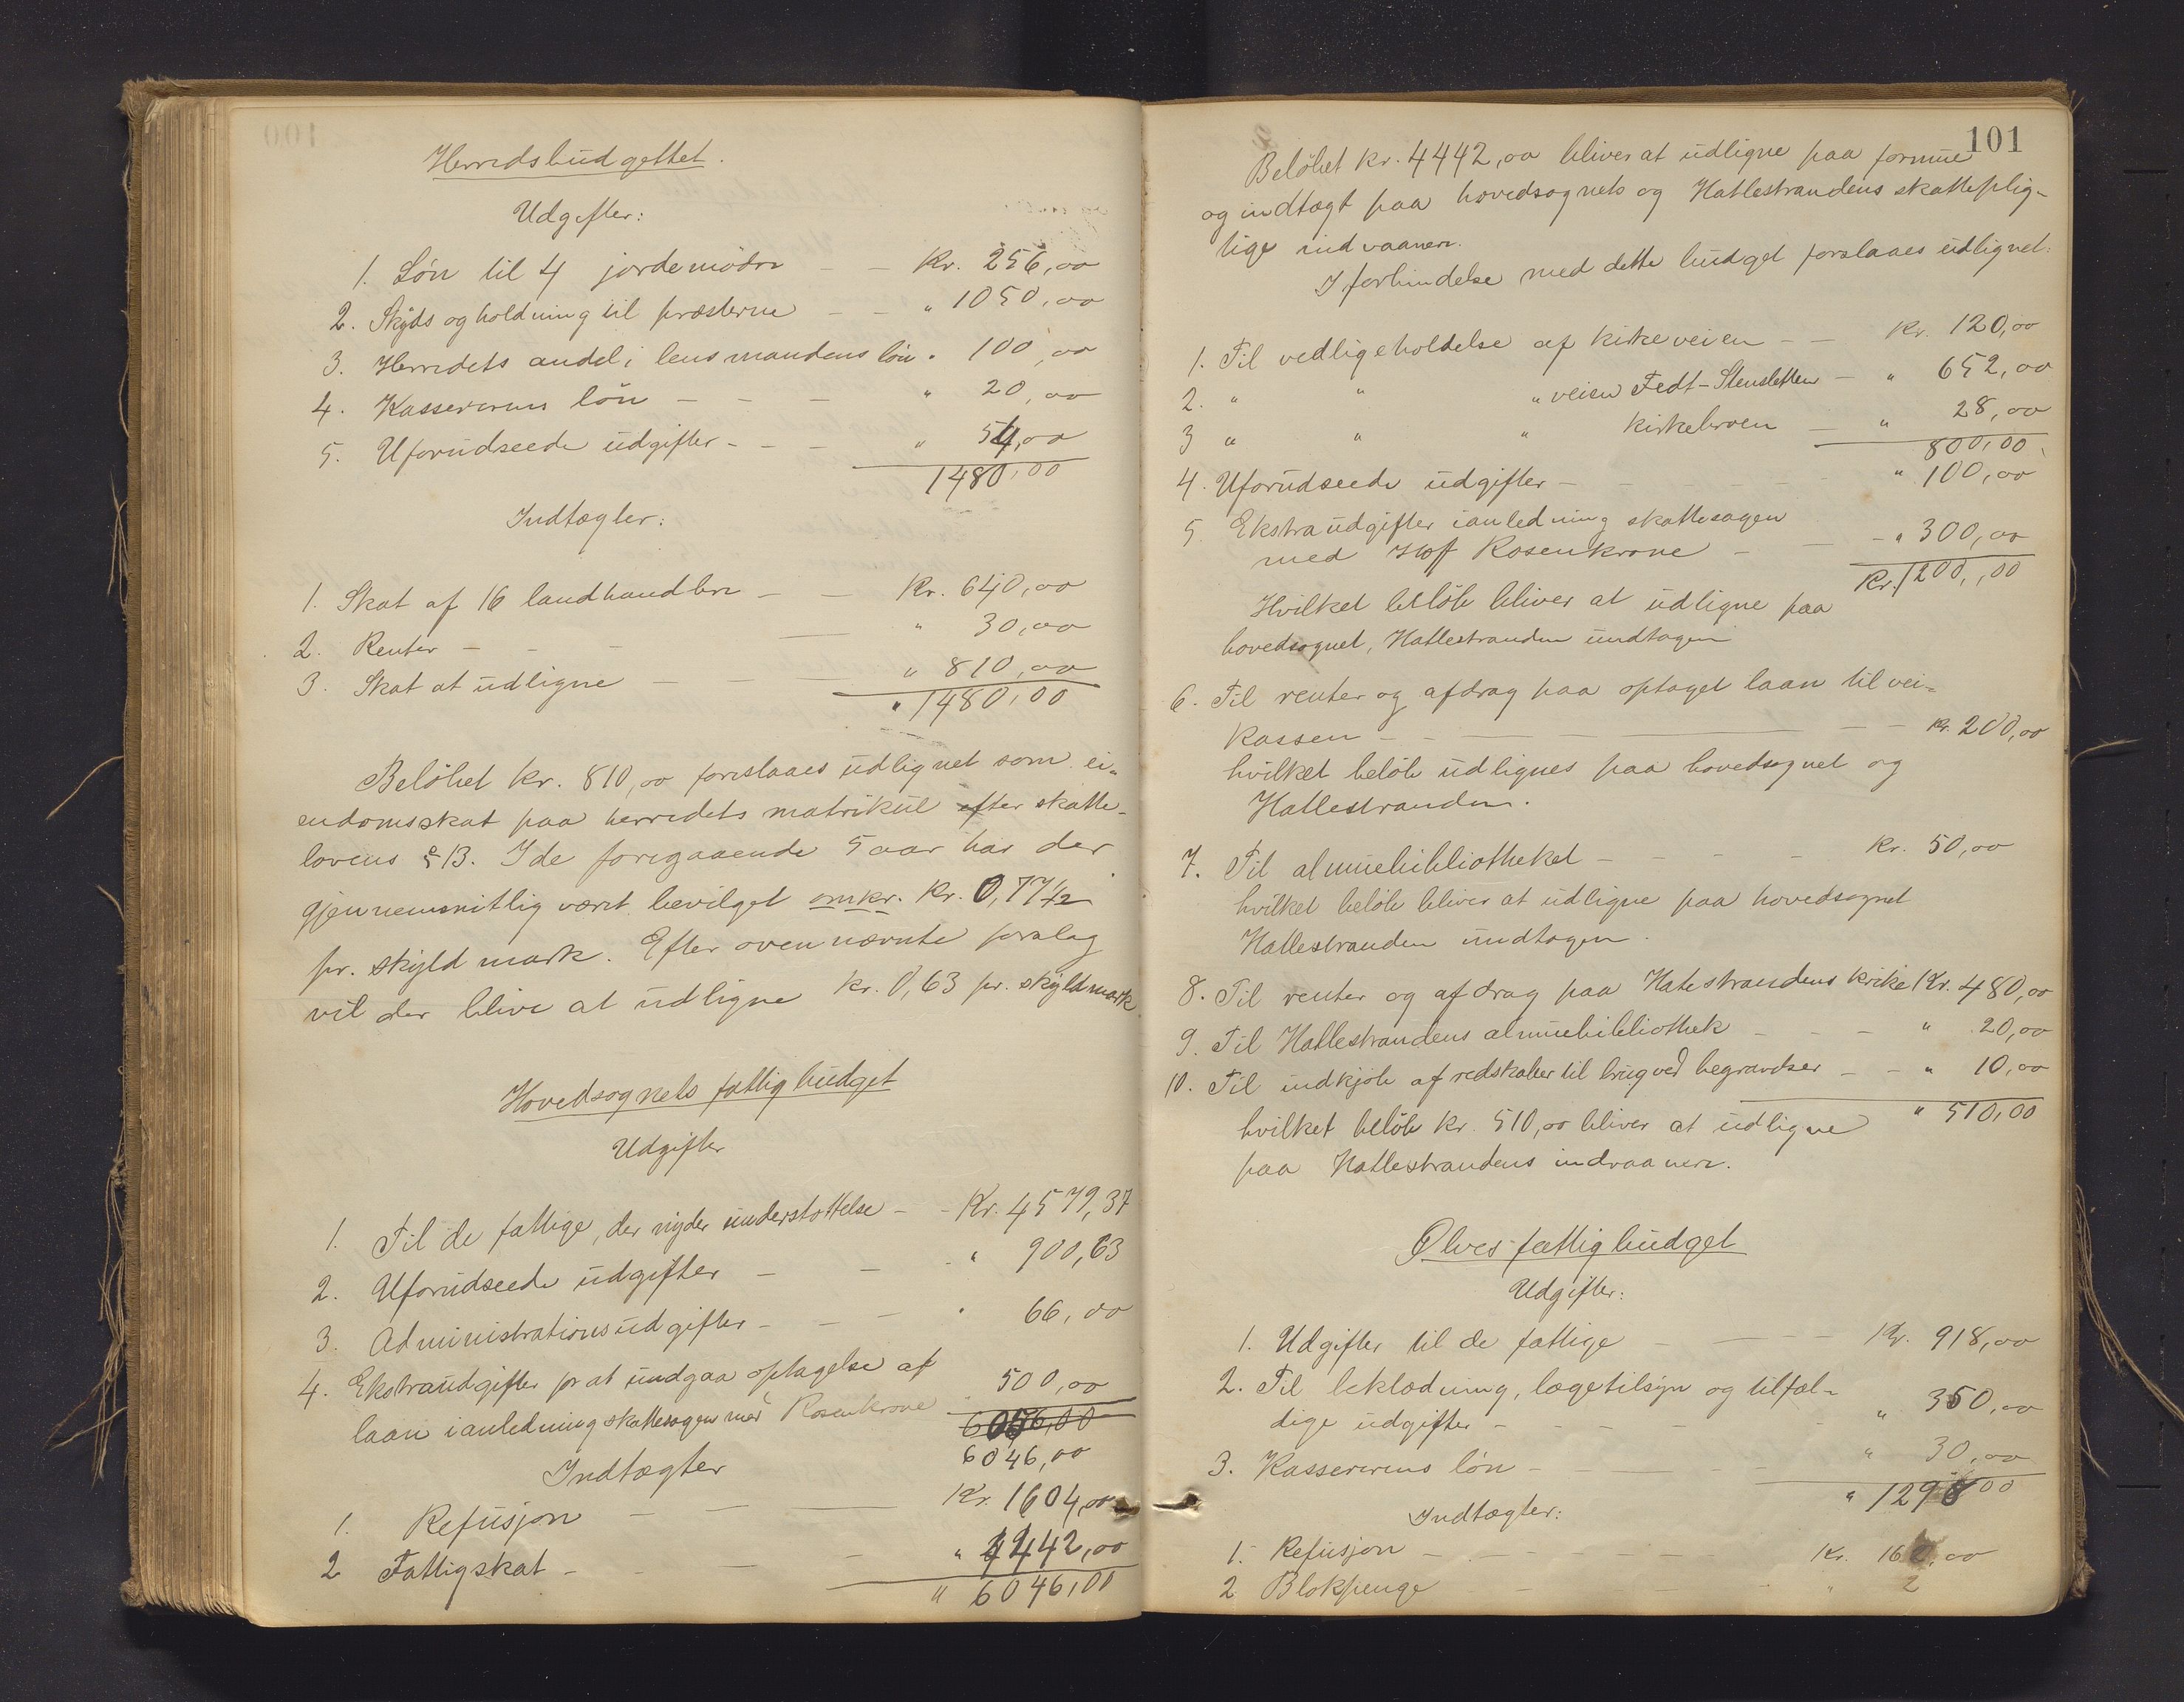 Herredsbudgettet.
Udgifter:
1. Løn til 4 jordemødre — — Kr. 256,00
2. Skyds og holdning til præsterne — — " 1050,00
3. Herredets andel i lensmandens løn " 100,00
4. Kassererens løn — — — " 20,00
5. Uforudseede udgifter — — — " 54,00
1480,00
Indtægter:
1. Skat af 16 landhandlere — — Kr. 640,00
2. Renter — — — — " 30,00
3. Skat at udligne — — — " 810,00
" 1480,00
Beløbet kr. 810,00 foreslaaes udlignet som ei-
endomsskat paa herredets matrikul efter skatte-
lovens § 13. I de foregaaende 5 aar har der
gjennemsnitlig været bevilget omkr. kr. 0,77 1/2
pr. skyldmark. Efter ovennævnte forslag
vil der blive at udligne kr. 0,63 pr. skyldmark.
Hovedsognets fattigbudget
Udgifter
1. Til de fattige, der nyder understøttelse — - Kr. 4579,37
2. Uforudseede udgifter — — " 900,63
3. Administrationsudgifter — — — " 66,00
4. Ekstraudgifter for at undgaa optagelse af
laan ianledning skattesagen med Rosenkrone 500,00
6056,00
6046,00
Indtægter
1. Refusjon — — Kr. 1604,00
2 Fattigskat — — — " 4442,00
" 6046,00
101
Beløbet kr. 4442,00 bliver at udligne paa formue
og indtægt paa hovedsognets og Hatlestrandens skatteplig-
tige indvaanere.
I forbindelse med dette budget forslaaes udlignet:
1. Til vedligeholdelse af kirkeveien — — Kr. 120,00
2. " " " veien Fedt-Stensletten — " 652,00
3 " " " kirkebroen — " 28,00
800,00
4. Uforudseede udgifter — — — " 100,00
5. Ekstraudgifter ianledning skattesagen
med Hoff Rosenkrone — — - " 300,00
Kr. 1200,00
Hvilket beløb bliver at udligne paa
hovedsognet, Hatlestranden undtagen
6. Til renter og afdrag paa optaget laan til vei-
kassen — — — — — Kr. 200,00
hvilket beløb udlignes paa hovedsognet og
Hatlestranden.
7. Til almuebibliotheket — — — — Kr. 50,00
hvilket beløb bliver at udligne paa hovedsognet
Hatlestranden undtagen.
8. Til renter og afdrag paa Hatestrandens krike Kr. 480,00
9. Til Hatlestrandens almuebibliothek — — — " 20,00
10. Til indkjøb af redskaber til brug ved begravelser — — " 10,00
" 510,00
hvilket beløb kr. 510,00 bliver at udligne
paa Hatlestrandens indvaanere.
Ølves fattigbudget
Udgifter:
1. Udgifter til de fattige — — — — Kr. 918,00
2. Til beklædning, lægetilsyn og tilfæl-
dige udgifter — — — — " 350,00
3. Kassererens løn — — — — " 30,00
" 1298,00
Indtægter:
1. Refusjon — — — — — Kr. 160,00
2 Blokpenge — — " 2